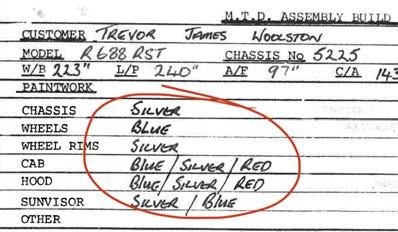 M.T.D. ASSEMBLY BUILD
CUSTOMER TREVOR JAMES WOOLSTON
MODEL R688 RST CHASSIS No 5225
W/B 223" L/P 240" A/F 97" C/A 143
PAINTWORK
CHASSIS SILVER
WHEELS BLUE
WHEEL RIMS SILVER
CAB BLUE/SILVER/RED
HOOD BLUE/SILVER/RED
SUNVISOR SILVER/BLUE
OTHER